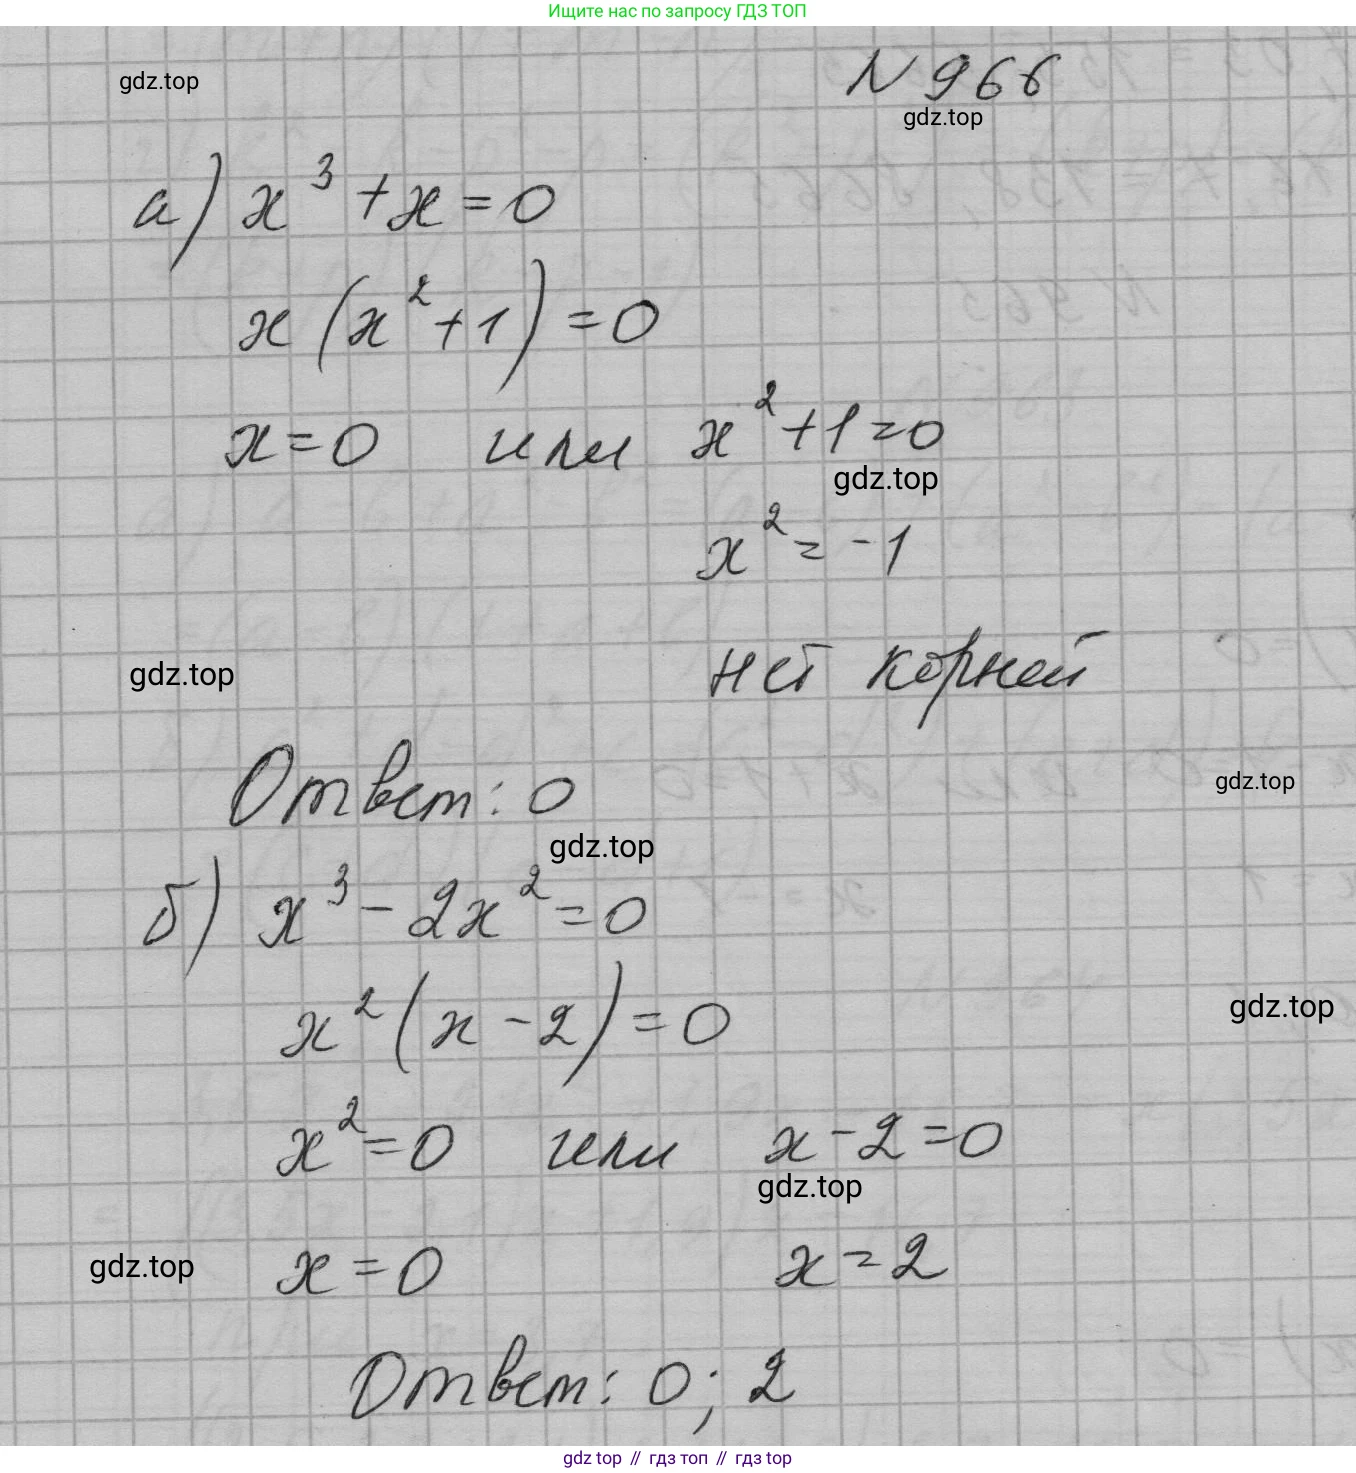 Ищите нас по запросу ГДЗ ТОП
N 966
gdz.top
gdz.top
а) x³ + x = 0
x(x² + 1) = 0
x = 0 или x² + 1 = 0
gdz.top
x² = -1
нет корней
gdz.top
Ответ: 0
gdz.top
gdz.top
б) x³ - 2x² = 0
x²(x - 2) = 0
gdz.top
x² = 0 или x - 2 = 0
gdz.top
gdz.top
x = 0 x = 2
Ответ: 0; 2
gdz top // гдз топ // гдз top